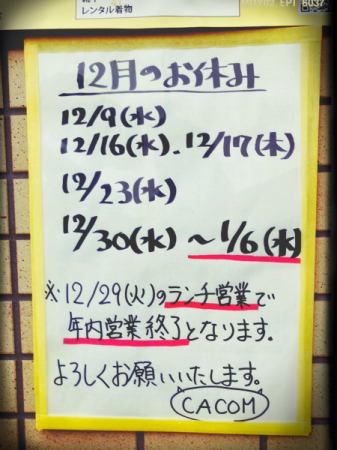 レンタル着物
12月のお休み
12/9(水)
12/16(水)、12/17(木)
12/23(水)
12/30(水)～1/6(水)
※12/29(火)のランチ営業で
年内営業終了となります。
よろしくお願いいたします。
CACOM